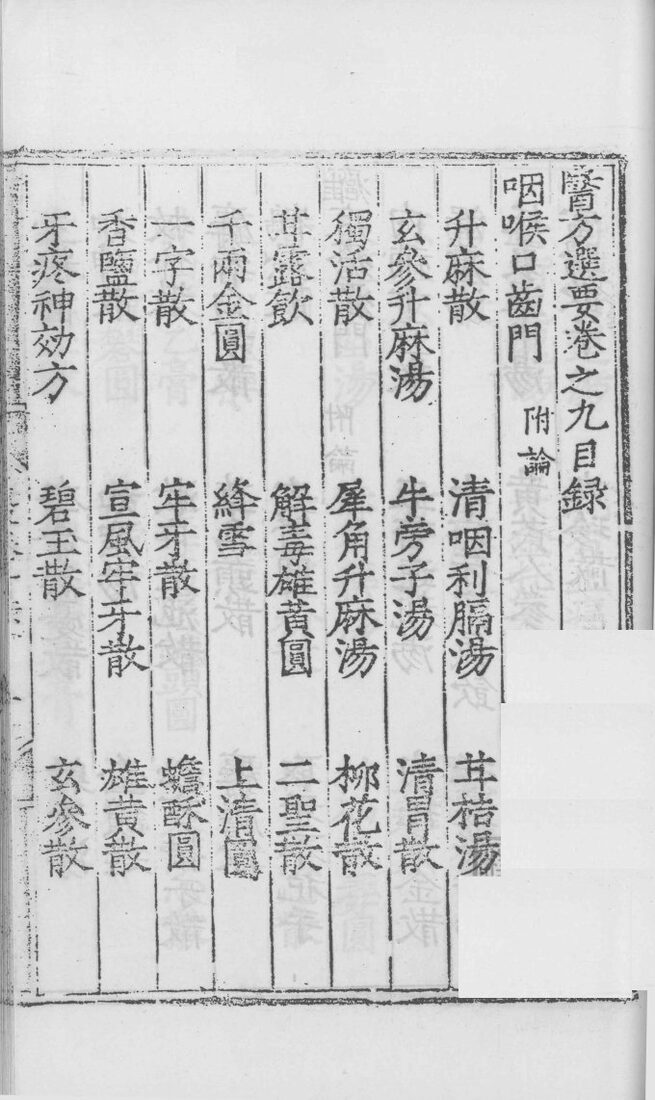 醫方選要卷之九目録
咽喉口齒門 附論
升麻散 清咽利膈湯 甘桔湯
玄參升麻湯 牛旁子湯 清胃散
獨活散 犀角升麻湯 柳花散
甘露飲 解毒雄黃圓 二聖散
千兩金圓 絳雪 上清圓
一字散 牢牙散 蟾酥圓
香鹽散 宣風牢牙散 雄黃散
牙疼神効方 碧玉散 玄參散